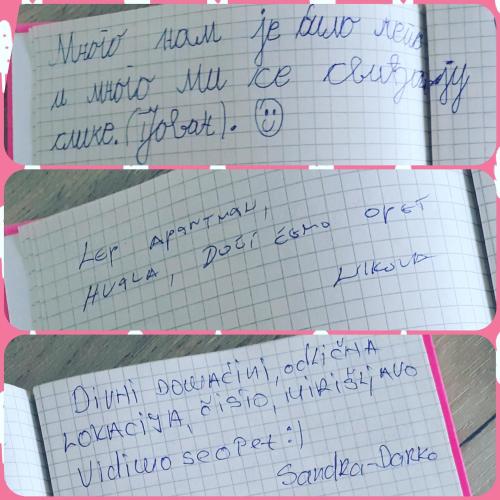 Много нам је било лепо
и много ми се свиђају
слике. (Јован). ☺
LEP APARTMAN,
HVALA, DOĆI ĆEMO OPET
Nikola
DIVNI DOMAĆINI, ODLIČNA
LOKACIJA, ČISTO, MIRIŠLJAVO
Vidimo se opet :)
Sandra-Darko